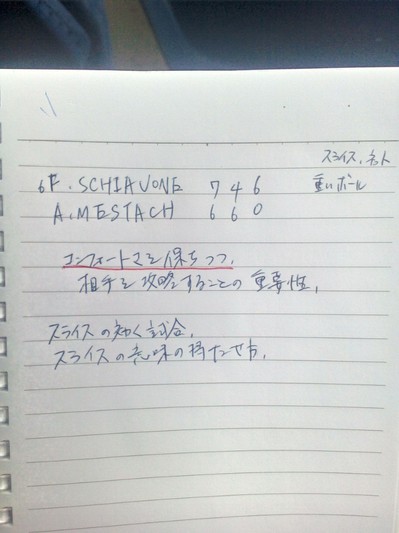 スライス、ネット
重いボール
6 F. SCHIAVONE 7 4 6
A. MESTACH 6 6 0
コンフォートさを保ちつつ、
相手を攻略することの重要性。
スライスの効く試合。
スライスの意味の持たせ方。